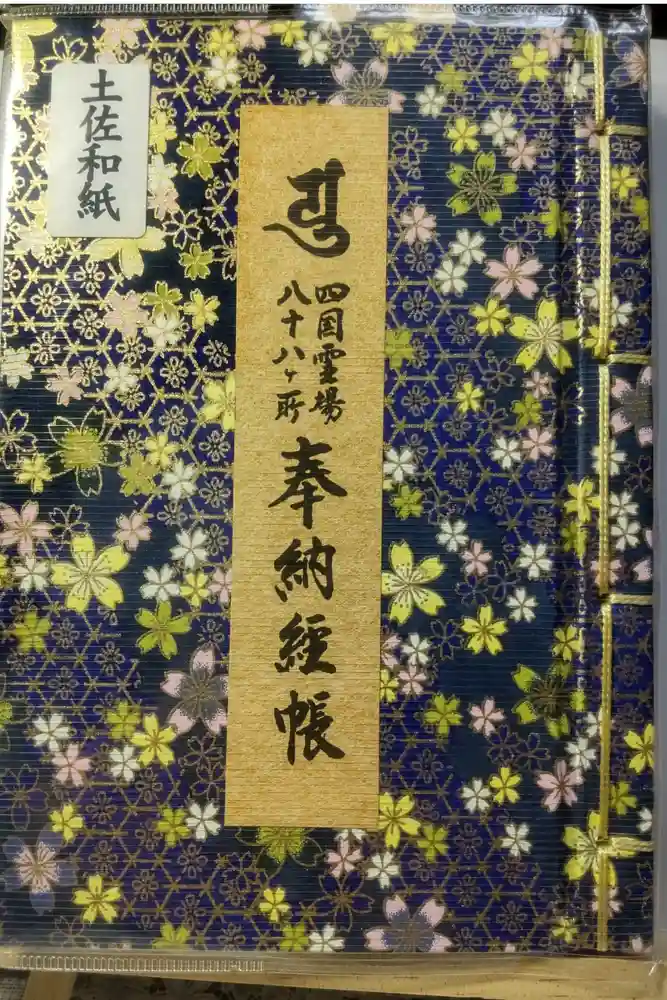 土佐和紙
四国霊場
八十八ヶ所
奉納經帳